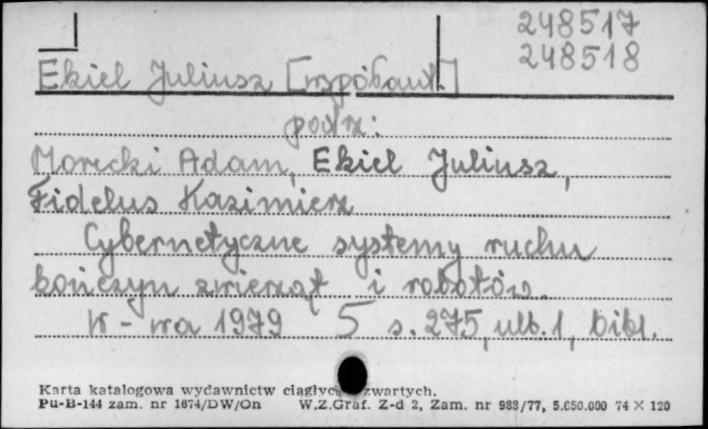 248517
248518
Ekiel Juliusz [współaut.]
podrz:
Morecki Adam, Ekiel Juliusz,
Fidelus Kazimierz
Cybernetyczne systemy ruchu
kończyn zwierząt i robotów.
W-wa 1979 5 s. 275, ulb. 1, bibl.
Karta katalogowa wydawnictw ciągłych zwartych.
Pu-B-144 zam. nr 1674/DW/On W.Z.Graf. Z-d 2, Zam. nr 988/77, 5.050.000 74 × 120